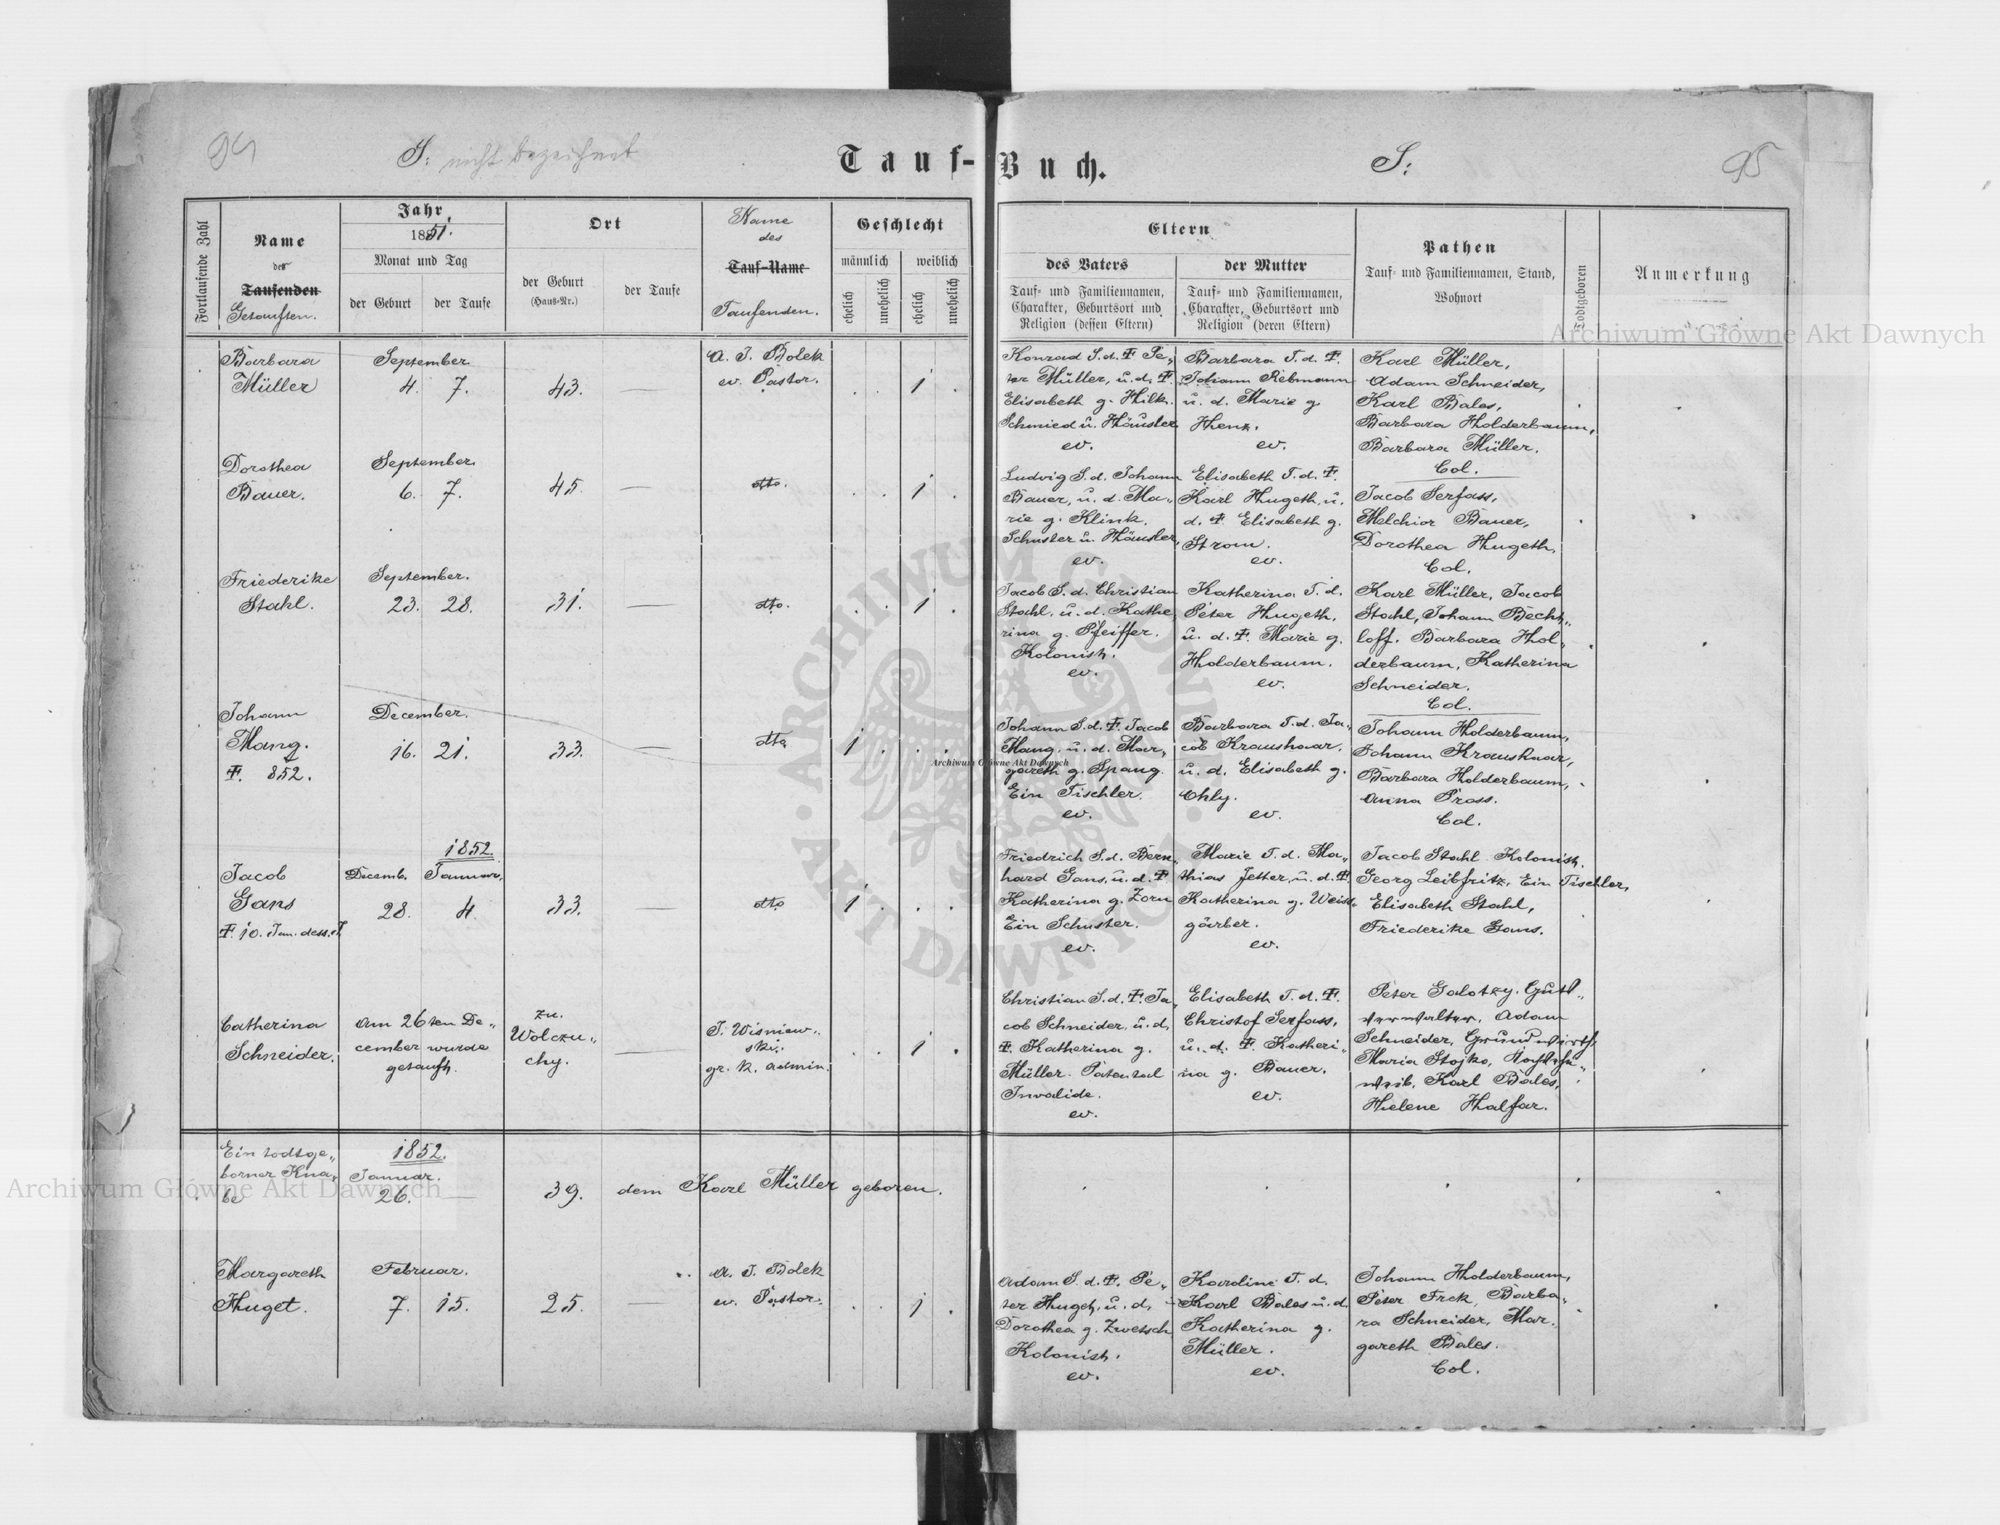 94
S: nicht bezeichnet
Tauf-Buch.
S:
95
Fortlaufende Zahl
Name
des
Taufenden
Getauften.
Jahr,
1851.
Monat und Tag
der Geburt
der Taufe
Ort
der Geburt
(Haus-Nr.)
der Taufe
Name
des
Tauf-Name
Taufenden.
Geschlecht
männlich
weiblich
ehelich
unehelich
ehelich
unehelich
Eltern
des Vaters
Tauf- und Familiennamen,
Charakter, Geburtsort und
Religion (dessen Eltern)
der Mutter
Tauf- und Familiennamen,
Charakter, Geburtsort und
Religion (deren Eltern)
Pathen
Tauf- und Familiennamen, Stand,
Wohnort
Todtgeboren
Anmerkung
Barbara
Müller
September
4. 7.
43. —
A. J. Bolek
ev. Pastor.
1
Konrad S. d. Ŧ Pe„
ter Müller, u. d. Ŧ.
Elisabeth g. Hilk.
Schmied u. Häusler
ev.
Barbara T. d. Ŧ.
Johann Rebmann
u. d. Marie g.
Henz.
ev.
Karl Müller,
Adam Schneider,
Karl Bales,
Barbara Holderbaum,
Barbara Müller.
Col.
Dorothea
Bauer.
September.
6. 7.
45. —
dto.
1
Ludvig S. d. Johann
Bauer, u. d. Ma„
rie g. Klink.
Schuster u. Häusler,
ev.
Elisabeth T. d. Ŧ.
Karl Hugeth, u.
d. Ŧ. Elisabeth g.
Strom.
ev.
Jacob Serfass,
Melchior Bauer,
Dorothea Hugeth,
Col.
Friederike
Stahl.
September.
23. 28.
31. —
dto.
1
Jacob S. d. Christian
Stahl, u. d. Kathe
rina g. Pfeiffer.
Kolonist.
ev.
Katherina T. d.
Peter Hugeth,
u. d. Ŧ. Marie g.
Holderbaum.
ev.
Karl Müller, Jacob
Stahl, Johann Becht„
loff. Barbara Hol„
derbaum, Katherina
Schneider.
Col.
Johann
Mang.
Ŧ. 852.
December.
16. 21.
33. —
dto
1
Johann S. d. Ŧ. Jacob
Mang, u. d. Mar„
gareth g. Spang.
Ein Tischler.
ev.
Barbara T. d. Ja„
cob Kraushaar,
u. d. Elisabeth g.
Ohly.
ev.
Johann Holderbaum,
Johann Kraushaar,
Barbara Holderbaum,
Anna Pross.
Col.
1852.
Jacob
Gans
Ŧ. 10. Jan. dess. J.
Decemb. Januar.
28. 4.
33. —
dto
1
Friedrich S. d. Bern„
hard Gans, u. d. Ŧ
Katherina g. Zorn
Ein Schuster.
ev.
Marie T. d. Ma„
thias Jetter, u. d. Ŧ.
Katherina g. Weiss„
gärber.
ev.
Jacob Stahl Kolonist.
Georg Leibfritz, Ein Tischler,
Elisabeth Stahl,
Friederike Gans.
Catherina
Schneider.
Am 26ten De„
cember wurde
getauft.
zu.
Wolczu„
chy.
—
J. Wisniew„
ski.
gr. k. Admin.
1
Christian S. d. Ŧ. Ja„
cob Schneider, u. d.
Ŧ. Katherina g.
Müller. Patental
Invalide.
ev.
Elisabeth T. d. Ŧ.
Christof Serfass,
u. d. Ŧ. Katheri„
na g. Bauer.
ev.
Peter Galotzy. Guts„
verwalter, Adam
Schneider, Grundwirth,
Maria Stojko,
weib, Karl Bales,
Helene Halfar.
Ein todtge„
borner Kna„
be
1852.
Januar.
26. —
39. dem Karl Müller geboren.
Margareth
Huget.
Februar.
7. 15.
25. —
A. J. Bolek
ev. Pastor.
1
Adam S. d. Ŧ. Pe„
ter Huget, u. d.
Dorothea g. Zwetsch
Kolonist.
ev.
Karoline T. d.
Karl Bales u. d.
Katherina g.
Müller.
ev.
Johann Holderbaum,
Peter Frek, Barba„
ra Schneider, Mar„
gareth Bales.
Col.
Archiwum Główne Akt Dawnych
Archiwum Główne Akt Dawnych
Archiwum Główne Akt Dawnych
ARCHIWUM GŁÓWNE AKT DAWNYCH